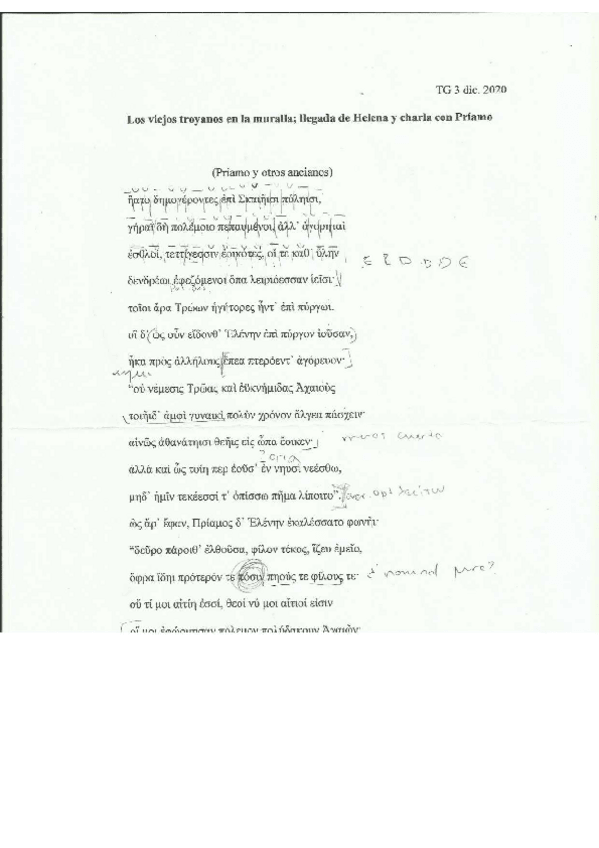 TG 3 dic. 2020
Los viejos troyanos en la muralla; llegada de Helena y charla con Príamo
(Príamo y otros ancianos)
ἥατο δημογέροντες ἐπὶ Σκαιῆισι πύληισι,
γήραϊ δὴ πολέμοιο πεπαυμένοι, ἀλλ' ἀγορηταὶ
ἐσθλοί, τεττίγεσσιν ἐοικότες, οἵ τε καθ' ὕλην
δενδρέωι ἐφεζόμενοι ὄπα λειριόεσσαν ἱεῖσι·
τοῖοι ἄρα Τρώων ἡγήτορες ἧντ' ἐπὶ πύργωι.
οἳ δ' ὡς οὖν εἴδονθ' Ἑλένην ἐπὶ πύργον ἰοῦσαν,
ἦκα πρὸς ἀλλήλους ἔπεα πτερόεντ' ἀγόρευον·
"οὐ νέμεσις Τρῶας καὶ ἐϋκνήμιδας Ἀχαιοὺς
τοιῆιδ' ἀμφὶ γυναικὶ πολὺν χρόνον ἄλγεα πάσχειν·
αἰνῶς ἀθανάτηισι θεῆις εἰς ὦπα ἔοικεν·
ἀλλὰ καὶ ὧς τοίη περ ἐοῦσ' ἐν νηυσὶ νεέσθω,
μηδ' ἡμῖν τεκέεσσί τ' ὀπίσσω πῆμα λίποιτο".
ὣς ἄρ' ἔφαν, Πρίαμος δ' Ἑλένην ἐκαλέσσατο φωνῆι·
"δεῦρο πάροιθ' ἐλθοῦσα, φίλον τέκος, ἵζευ ἐμεῖο,
ὄφρα ἴδηι πρότερόν τε πόσιν πηούς τε φίλους τε·
οὔ τί μοι αἰτίη ἐσσί, θεοί νύ μοι αἴτιοί εἰσιν
οἵ μοι ἐφώρμησαν πόλεμον πολύδακρυν Ἀχαιῶν·